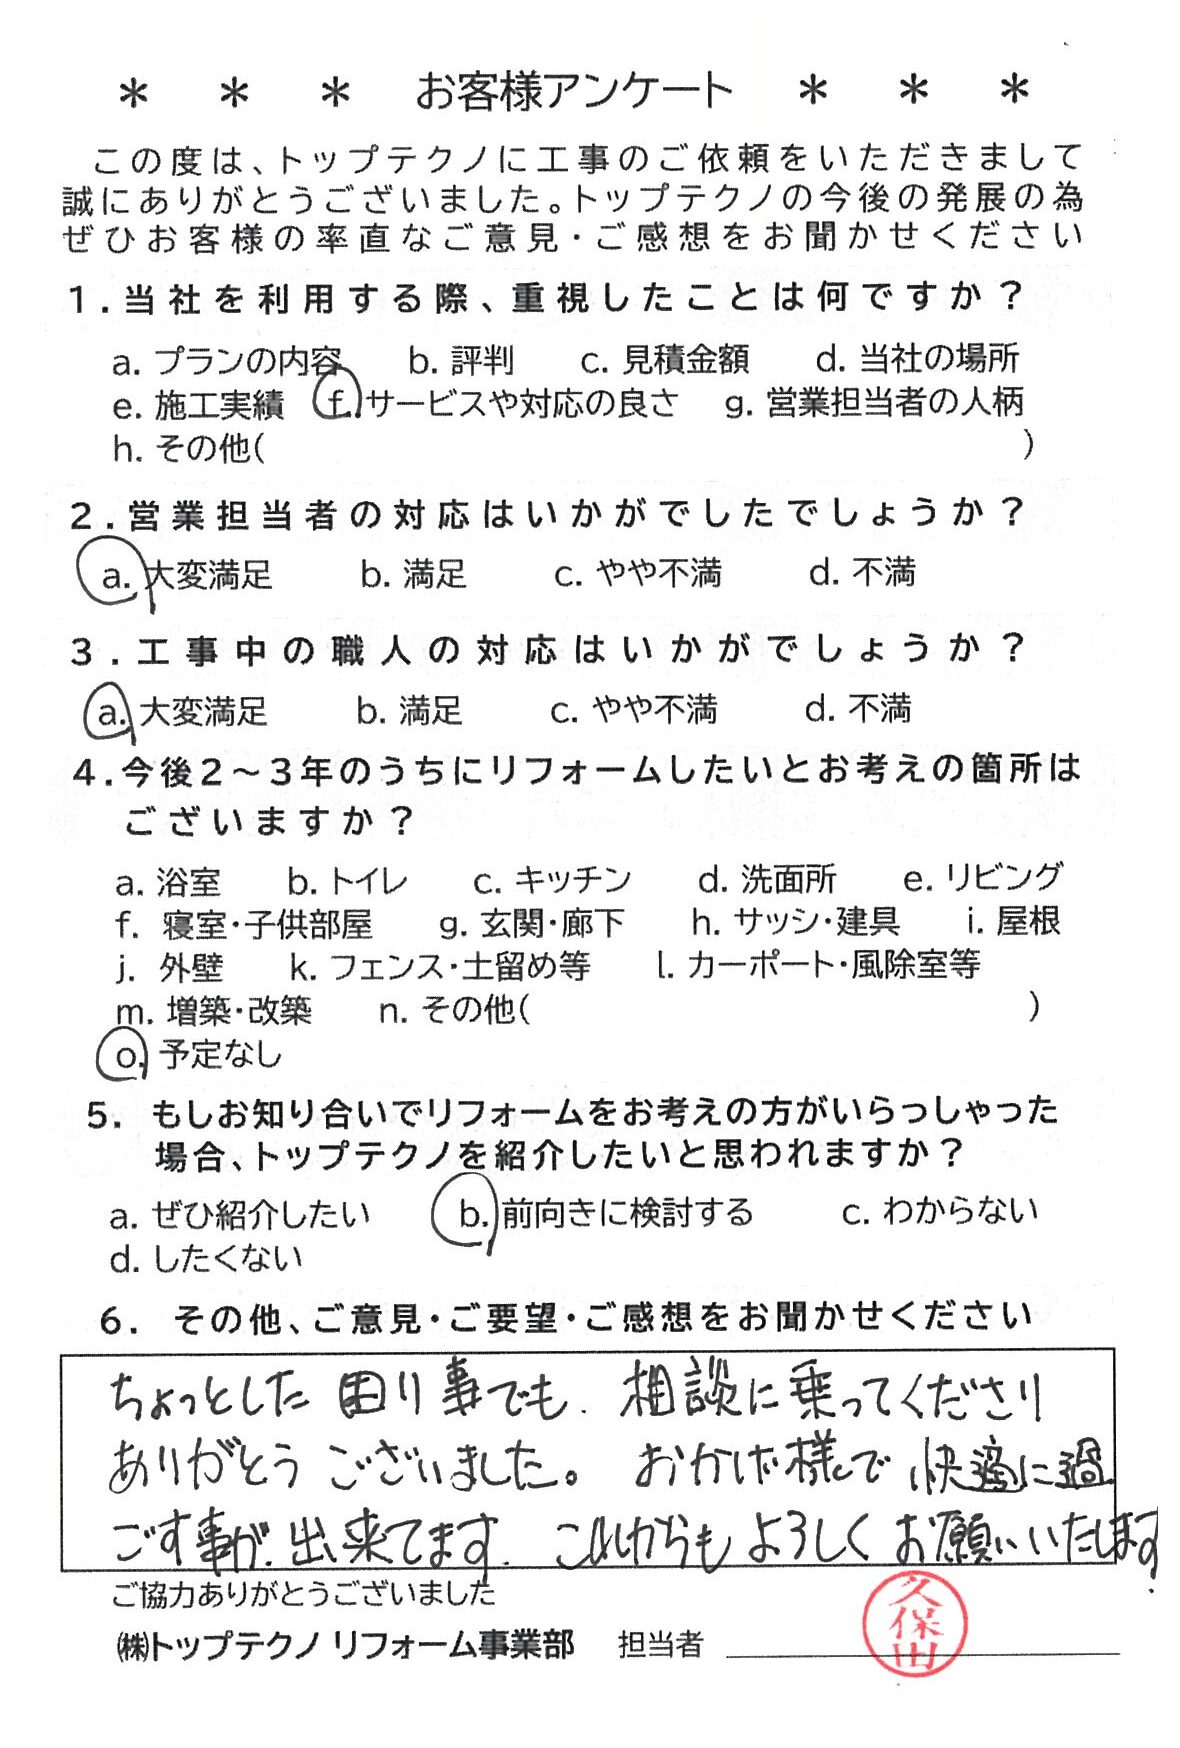 ＊　＊　＊　お客様アンケート　＊　＊　＊
この度は、トップテクノに工事のご依頼をいただきまして
誠にありがとうございました。トップテクノの今後の発展の為
ぜひお客様の率直なご意見・ご感想をお聞かせください
1.当社を利用する際、重視したことは何ですか？
a. プランの内容　b. 評判　c. 見積金額　d. 当社の場所
e. 施工実績　f. サービスや対応の良さ　g. 営業担当者の人柄
h. その他(　　　)
2.営業担当者の対応はいかがでしたでしょうか？
a. 大変満足　b. 満足　c. やや不満　d. 不満
3.工事中の職人の対応はいかがでしょうか？
a. 大変満足　b. 満足　c. やや不満　d. 不満
4.今後2～3年のうちにリフォームしたいとお考えの箇所は
ございますか？
a. 浴室　b. トイレ　c. キッチン　d. 洗面所　e. リビング
f. 寝室・子供部屋　g. 玄関・廊下　h. サッシ・建具　i. 屋根
j. 外壁　k. フェンス・土留め等　l. カーポート・風除室等
m. 増築・改築　n. その他(　　　)
o. 予定なし
5. もしお知り合いでリフォームをお考えの方がいらっしゃった
場合、トップテクノを紹介したいと思われますか？
a. ぜひ紹介したい　b. 前向きに検討する　c. わからない
d. したくない
6. その他、ご意見・ご要望・ご感想をお聞かせください
ちょっとした困り事でも、相談に乗ってくださり
ありがとうございました。おかげ様で快適に過
ごす事が、出来てます。これからもよろしくお願いいたします。
ご協力ありがとうございました
㈱トップテクノ リフォーム事業部　担当者　久保田